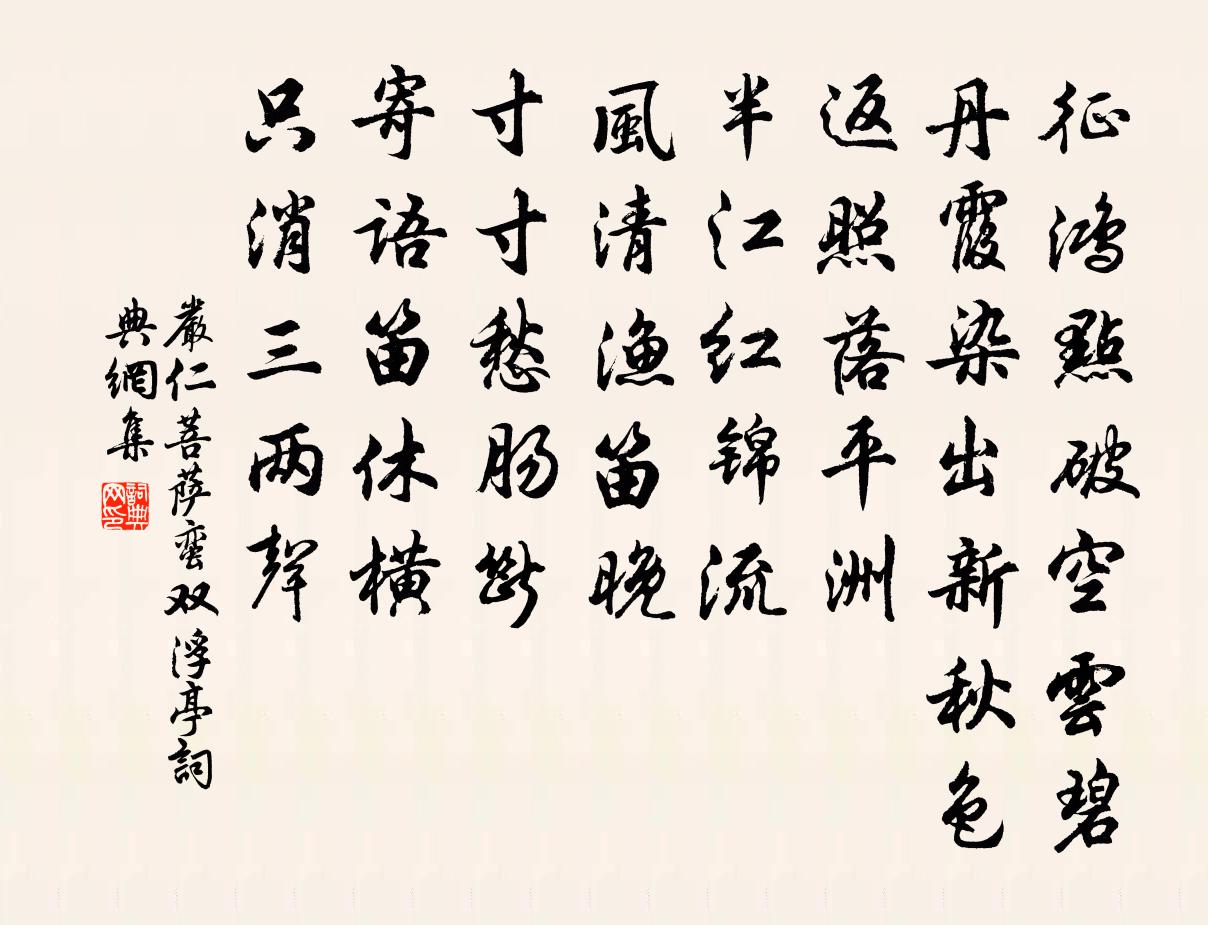 征鸿點破空雲碧
丹霞染出新秋色
返照落平洲
半江红锦流
風清漁笛晚
寸寸愁肠斷
寄語笛休横
只消三两聲
嚴仁菩萨蛮双浮亭詞
典網集
詞典网印